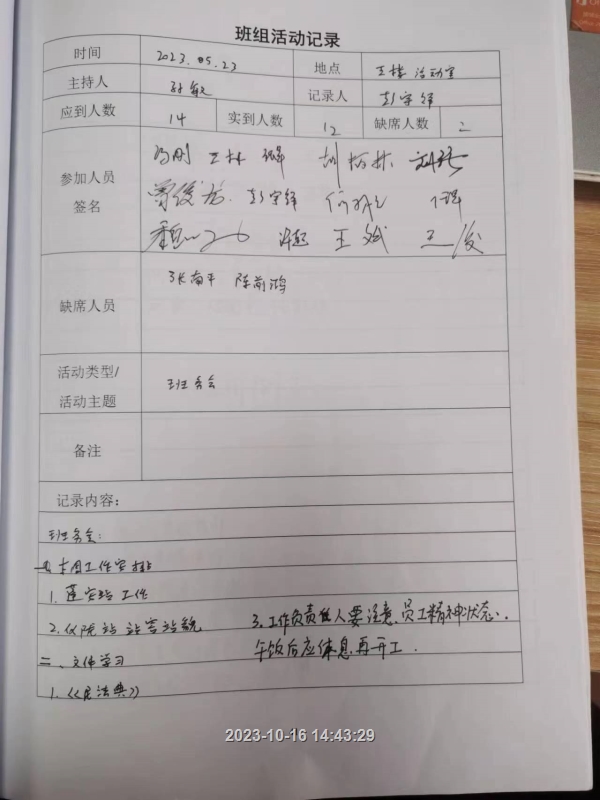 班组活动记录
时间 2023.05.23 地点 王楼 活动室
主持人 孙敏 记录人 彭宇辉
应到人数 14 实到人数 12 缺席人数 二
参加人员
签名
冯刚 王林
曾俊
许超 王斌 王俊
缺席人员 张南平 陈前鸿
活动类型/
活动主题 班务会
备注
记录内容:
班务会:
一、本周工作安排
1. 工作
2. 仪陇站 站容站貌 3. 工作负责任人要注意员工精神状态.
午饭后应休息再开工.
二、文件学习
1.《民法典》
2023-10-16 14:43:29